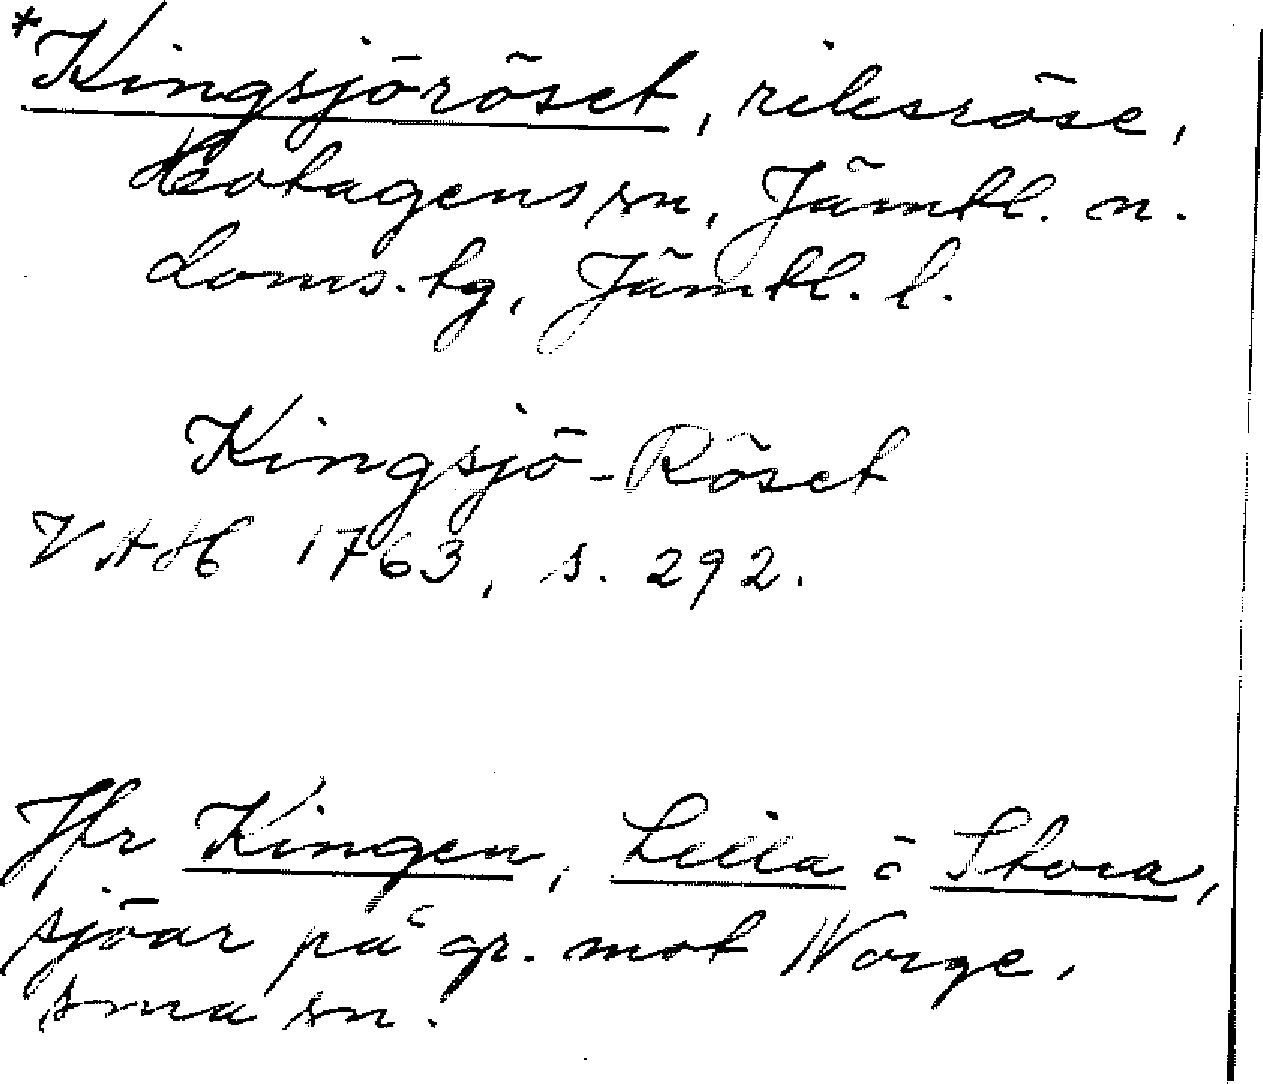 *Kingsjöröset, riksröse,
Hotagens sn, Jämtl. n.
doms. tg, Jämtl. l.
Kingsjö-Röset
VAH 1763, s. 292.
Jfr Kingen, Lilla o Stora,
sjöar på gr. mot Norge,
sma sn.